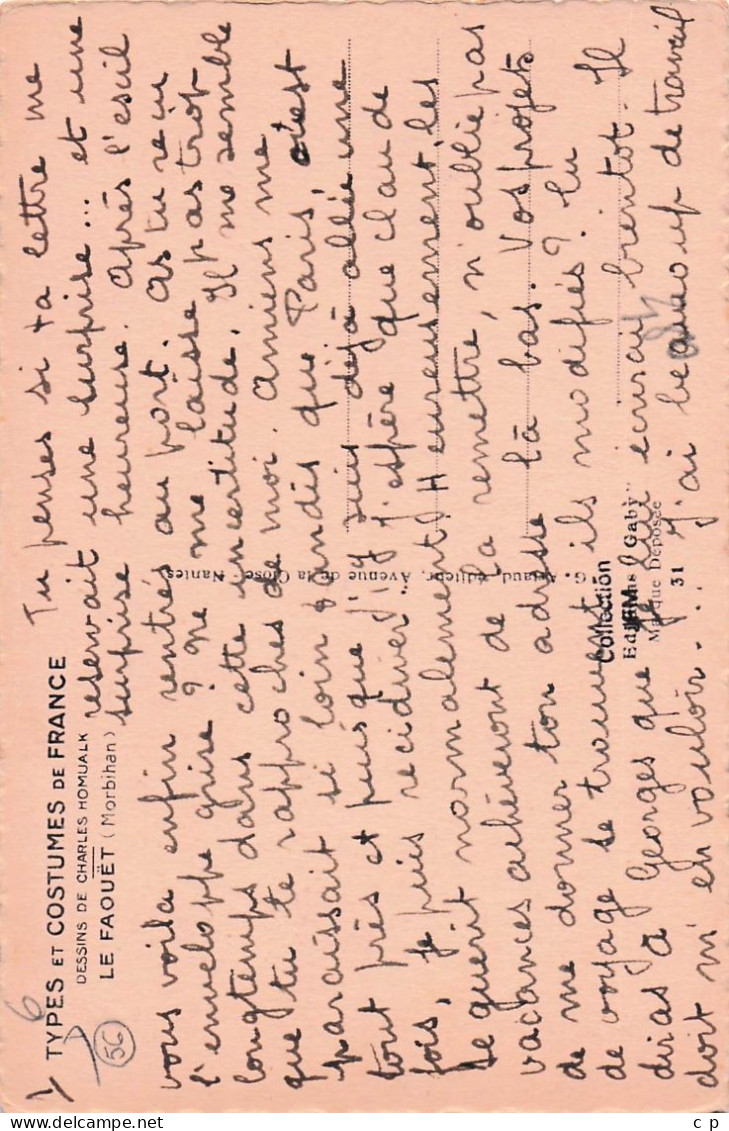 TYPES ET COSTUMES DE FRANCE
DESSINS DE CHARLES HOMUALK
LE FAOUËT (Morbihan)
56
6
Tu penses si ta lettre me
reservait une surprise... et une
surprise heureuse. Après l'exil
vous voila enfin rentrés au port. As tu reçu
l'enveloppe grise ? ne me laisse pas trop
longtemps dans cette incertitude. Il me semble
que tu te rapproches de moi. Amiens me
paraissait si loin, tandis que Paris, c'est
tout près et puis que j'y suis déjà allée une
fois, je puis recidiver. J'espère que Claude
se guerit normalement. Heureusement, les
vacances achèveront de la remettre, n'oublie pas
de me donner ton adresse là bas. Vos projets
de voyage se trouvent ils modifiés ? tu
diras à Georges que je lui écrirai bientot. Il
doit m'en vouloir.... j'ai beaucoup de travail
G. Artaud, éditeur, Avenue de la Close, Nantes
Collection
Editions "Gaby"
Marque Déposée
31
c p